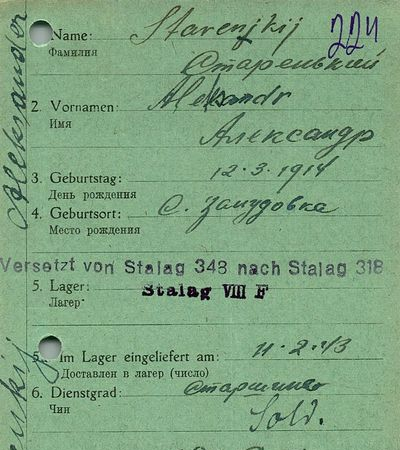 Name: Starenjkij 224
Фамилия Старенький
2. Vornamen: Alexandr
Имя Александр
3. Geburtstag: 12·3·1914
День рождения
4. Geburtsort: с. Замудовка
Место рождения
Versetzt von Stalag 348 nach Stalag 318
5. Lager: Stalag VIII F
Лагер:
Im Lager eingeliefert am: 11·2·43
Доставлен в лагер (число)
6. Dienstgrad: старшина
Чин Sold.
Aleksander